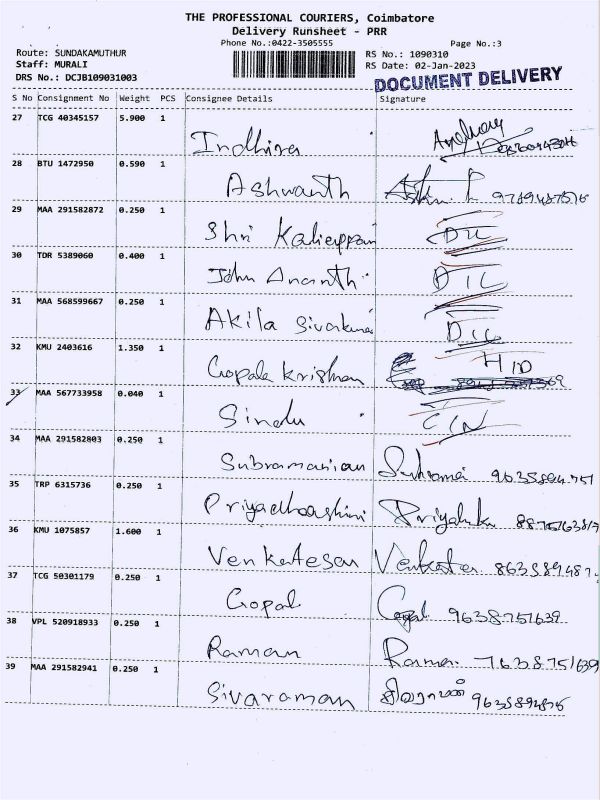 THE PROFESSIONAL COURIERS, Coimbatore
Delivery Runsheet - PRR
Phone No.:0422-3505555
Page No.:3
Route: SUNDAKAMUTHUR
RS No.: 1090310
Staff: MURALI
RS Date: 02-Jan-2023
DRS No.: DCJB109031003
DOCUMENT DELIVERY
S No Consignment No Weight PCS Consignee Details Signature
27 TCG 40345157 5.900 1
Indhira
28 BTU 1472950 0.590 1
Ashwanth 9789487576
29 MAA 291582872 0.250 1
Shri Kalieppan DIL
30 TDR 5389060 0.400 1
John Ananth DIL
31 MAA 568599667 0.250 1
Akila Sivakumar DIL
32 KMU 2403616 1.350 1
Gopala Krishnan HID
33 MAA 567733958 0.040 1
Sindu CIN
34 MAA 291582803 0.250 1
Subramanian
35 TRP 6315736 0.250 1
Priyadhaashini
36 KMU 1075857 1.600 1
Venkatesan
37 TCG 50301179 0.250 1
Gopal Gopal 9638751639
38 VPL 520918933 0.250 1
Raman Raman 7638751639
39 MAA 291582941 0.250 1
Sivaraman சிவராமன்